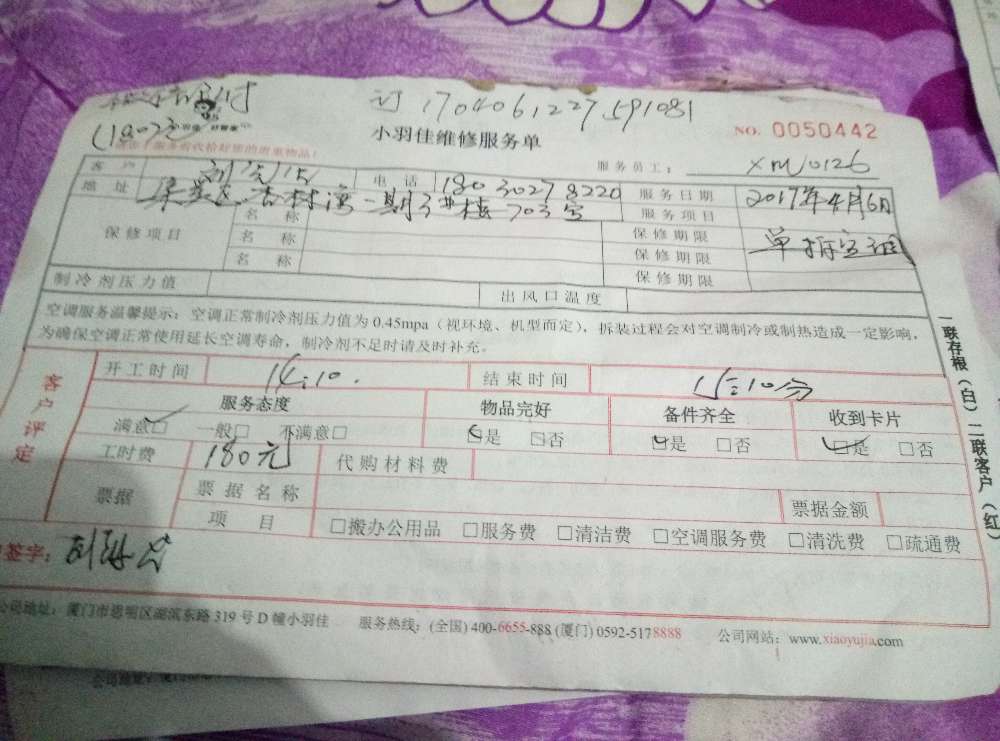 订 170406122759 1081
小羽佳维修服务单
NO. 0050442
服务员工: XM0126
客户 电话 18030278220 服务日期 2017年4月6日
地址 集美区杏林湾一期 号楼703室 服务项目 单拆空调
保修项目 名称 保修期限
名称 保修期限
名称 保修期限
制冷剂压力值 出风口温度
空调服务温馨提示: 空调正常制冷剂压力值为0.45mpa(视环境、机型而定), 拆装过程会对空调制冷或制热造成一定影响,
为确保空调正常使用延长空调寿命, 制冷剂不足时请及时补充。
客户评定
开工时间 14:10. 结束时间 15:10分
服务态度 物品完好 备件齐全 收到卡片
满意□ 一般□ 不满意□ □是 □否 □是 □否 □是 □否
工时费 180元 代购材料费
票据 票据名称 票据金额
项目 □搬办公用品 □服务费 □清洁费 □空调服务费 □清洗费 □疏通费
签字:
公司地址: 厦门市思明区湖滨东路319号D幢小羽佳 服务热线: (全国) 400-6655-888 (厦门) 0592-5178888 公司网站: www.xiaoyujia.com
一联存根(白)二联客户(红)
公司地址: 厦门